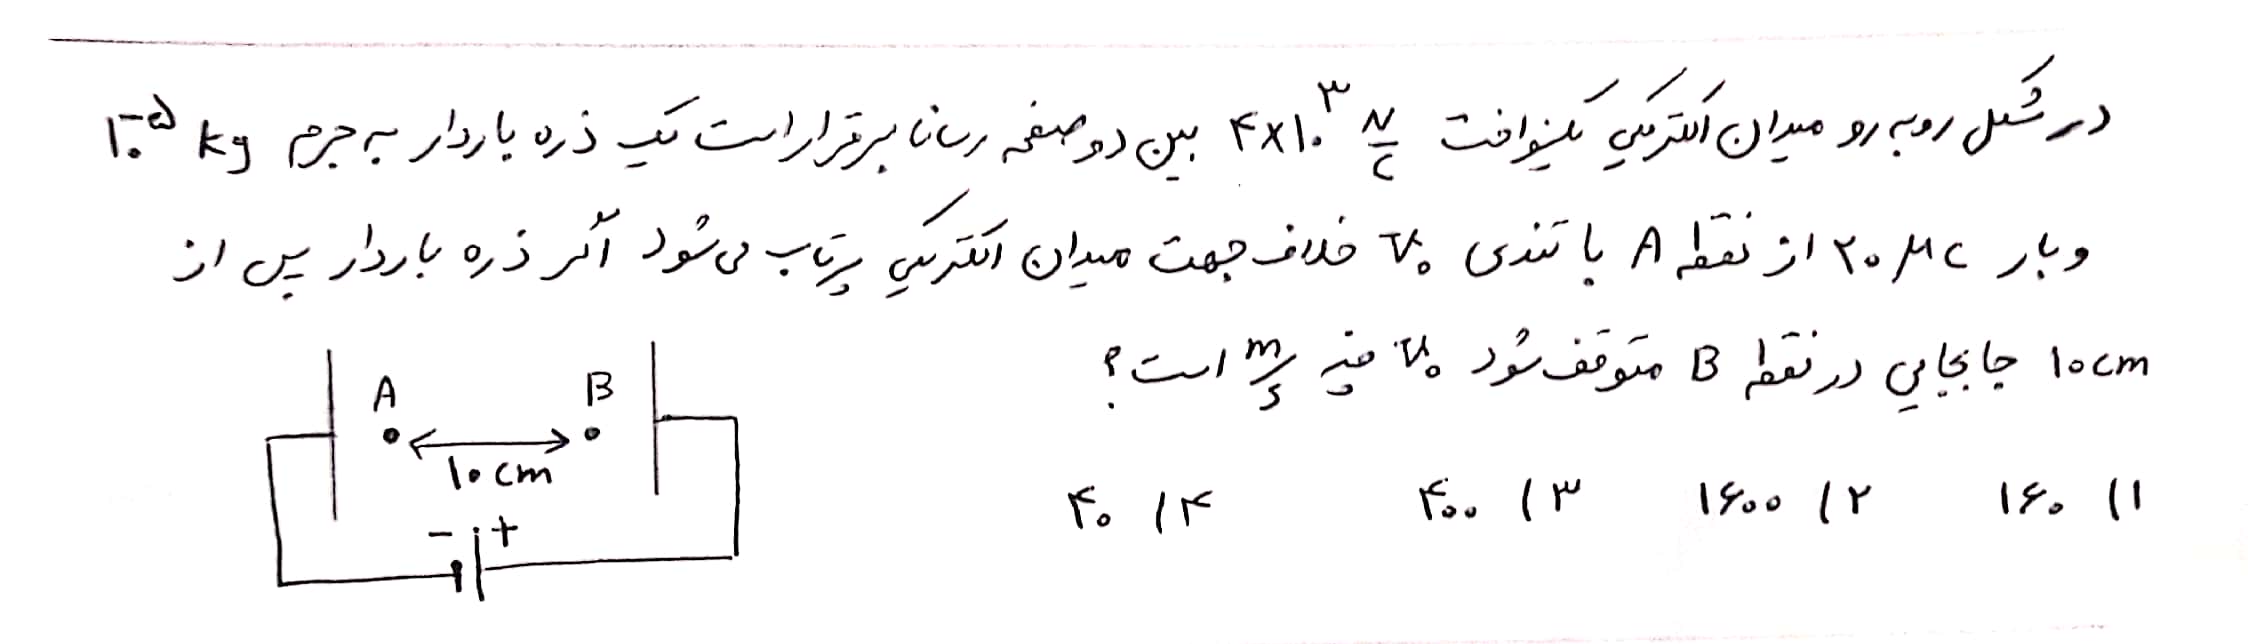 در شکل روبه رو میدان الکتریکی یکنواخت ۴×۱۰^۳ N/C بین دو صفحه رسانا برقرار است یک ذره باردار به جرم ۱۰^-۵ kg
و بار ۲۰ μC از نقطه A با تندی V₀ خلاف جهت میدان الکتریکی پرتاب می شود اگر ذره باردار پس از
۱۰cm جابجایی در نقطه B متوقف شود V₀ چند m/s است؟
۱) ۱۶۰ ۲) ۱۶۰۰ ۳) ۴۰۰ ۴) ۴۰
A B
۱۰cm
- +